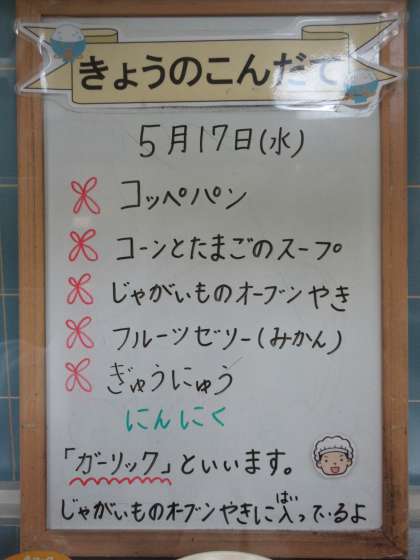 きょうのこんだて
5月17日(水)
コッペパン
コーンとたまごのスープ
じゃがいものオーブンやき
フルーツゼリー(みかん)
ぎゅうにゅう
にんにく
「ガーリック」といいます。
じゃがいものオーブンやきに入っているよ
はい